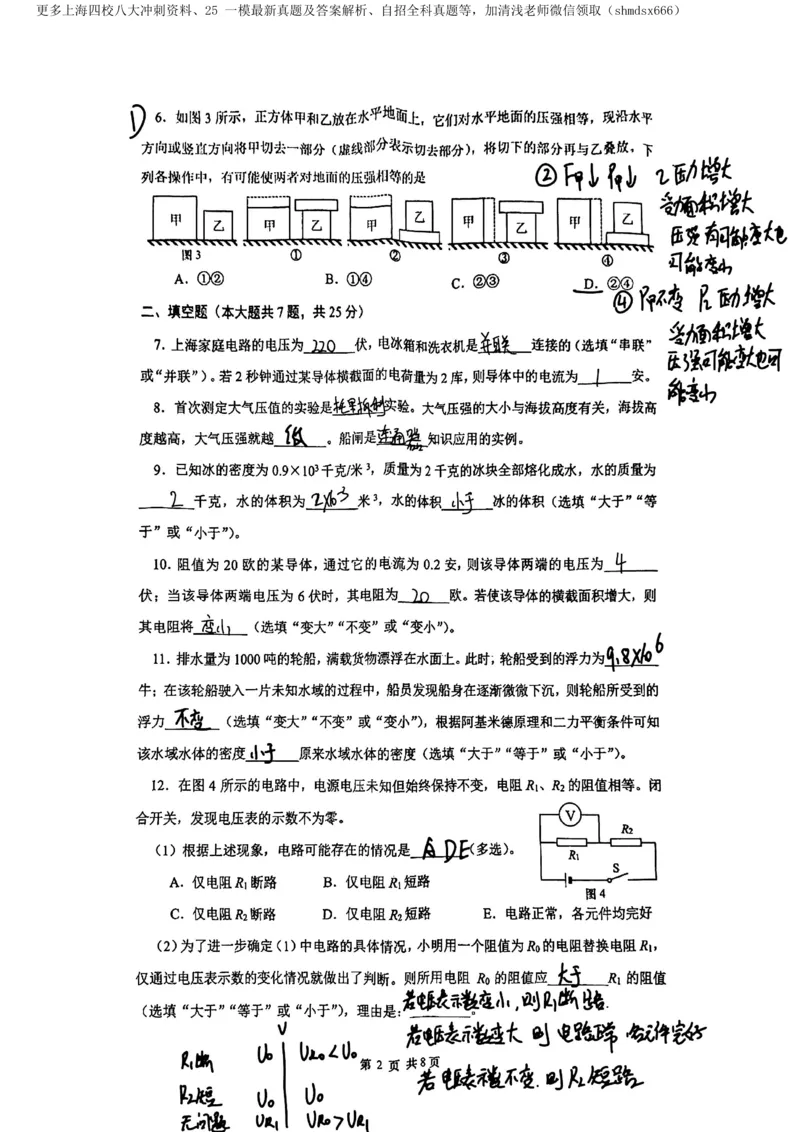 更多上海四校八大冲刺资料、25 一模最新真题及答案解析、自招全科真题等，加清浅老师微信领取（shmdsx666）
D 6．如图 3 所示，正方体甲和乙放在水平地面上，它们对水平地面的压强相等，现沿水平
方向或竖直方向将甲切去一部分（虚线部分表示切去部分），将切下的部分再与乙叠放，下
列各操作中，有可能使两者对地面的压强相等的是
② F甲↓ P甲↓ 乙压力增大
受力面积增大
压强有可能变大也
可能变小
甲 乙 甲 乙 甲 乙 甲 乙 甲 乙
图 3 ① ② ③ ④
A．①② B．①④ C．②③ D．②④
④ P甲不变 P乙 压力增大
受力面积增大
压强可能变大也可
能变小
二、填空题（本大题共 7 题，共 25 分）
7．上海家庭电路的电压为 220 伏，电冰箱和洗衣机是 并联 连接的（选填“串联”
或“并联”）。若 2 秒钟通过某导体横截面的电荷量为 2 库，则导体中的电流为 1 安。
8．首次测定大气压值的实验是 托里拆利 实验。大气压强的大小与海拔高度有关，海拔高
度越高，大气压强就越 低 。船闸是 连通器 知识应用的实例。
9．已知冰的密度为 0.9×10³ 千克/米 ³，质量为 2 千克的冰块全部熔化成水，水的质量为
2 千克，水的体积为 2×10³ 米 ³，水的体积 小于 冰的体积（选填“大于”“等
于”或“小于”）。
10．阻值为 20 欧的某导体，通过它的电流为 0.2 安，则该导体两端的电压为 4
伏；当该导体两端电压为 6 伏时，其电阻为 20 欧。若使该导体的横截面积增大，则
其电阻将 变小 （选填“变大”“不变”或“变小”）。
11．排水量为 1000 吨的轮船，满载货物漂浮在水面上。此时，轮船受到的浮力为 9.8×10⁶
牛；在该轮船驶入一片未知水域的过程中，船员发现船身在逐渐微微下沉，则轮船所受到的
浮力 不变 （选填“变大”“不变”或“变小”），根据阿基米德原理和二力平衡条件可知
该水域水体的密度 小于 原来水域水体的密度（选填“大于”“等于”或“小于”）。
12．在图 4 所示的电路中，电源电压未知但始终保持不变，电阻 R₁、R₂ 的阻值相等。闭
合开关，发现电压表的示数不为零。
V R₂ R₁ S
图 4
（1）根据上述现象，电路可能存在的情况是 A D E （多选）。
A．仅电阻 R₁ 断路 B．仅电阻 R₁ 短路
C．仅电阻 R₂ 断路 D．仅电阻 R₂ 短路 E．电路正常，各元件均完好
（2）为了进一步确定（1）中电路的具体情况，小明用一个阻值为 R₀ 的电阻替换电阻 R₁，
仅通过电压表示数的变化情况就做出了判断。则所用电阻 R₀ 的阻值应 大于 R₁ 的阻值
（选填“大于”“等于”或“小于”），理由是： 若电压表示数变小，则R₁断路.
若电压表示数变大 则 电路正常 各元件完好
若电压表示数不变. 则 R₂短路
V
R₁断 U₀ UR₀<U₀
R₂短 U₀ U₀
无问题 UR₁ UR₀>UR₁
第 2 页 共 8 页